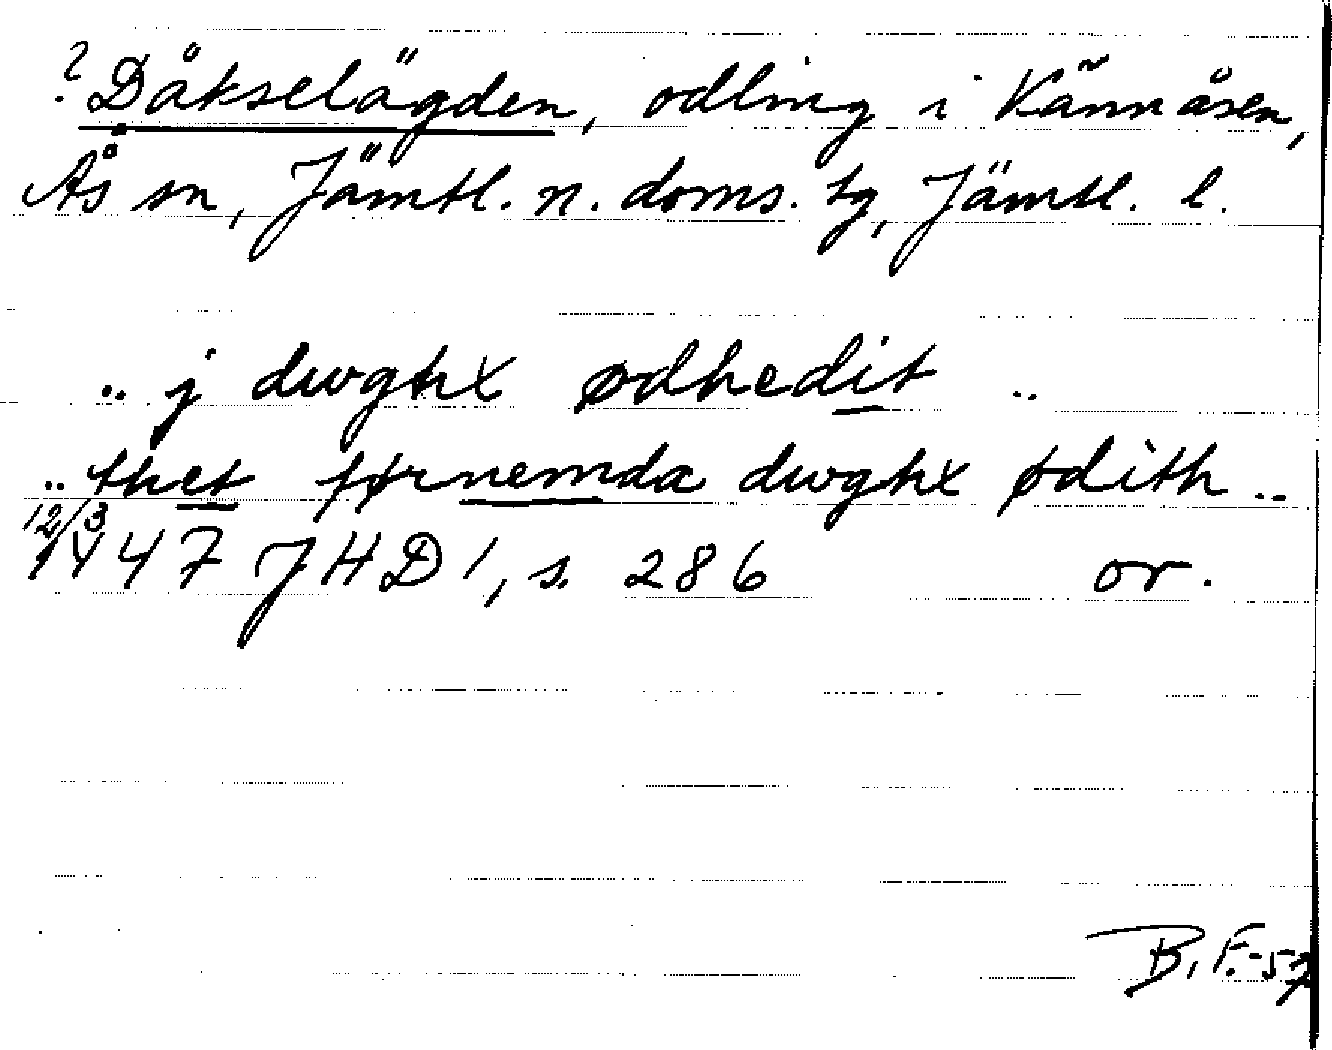 ? Däkselägden, odling i Kännåsen,
Ås sn, Jämtl. n. doms. tg, Jämtl. l.
.. j dwghx ødhedit ..
.. thetførnemda dwghx ødith ..
12/3 1447 JHD 1, s. 286 or.
B. F. -57